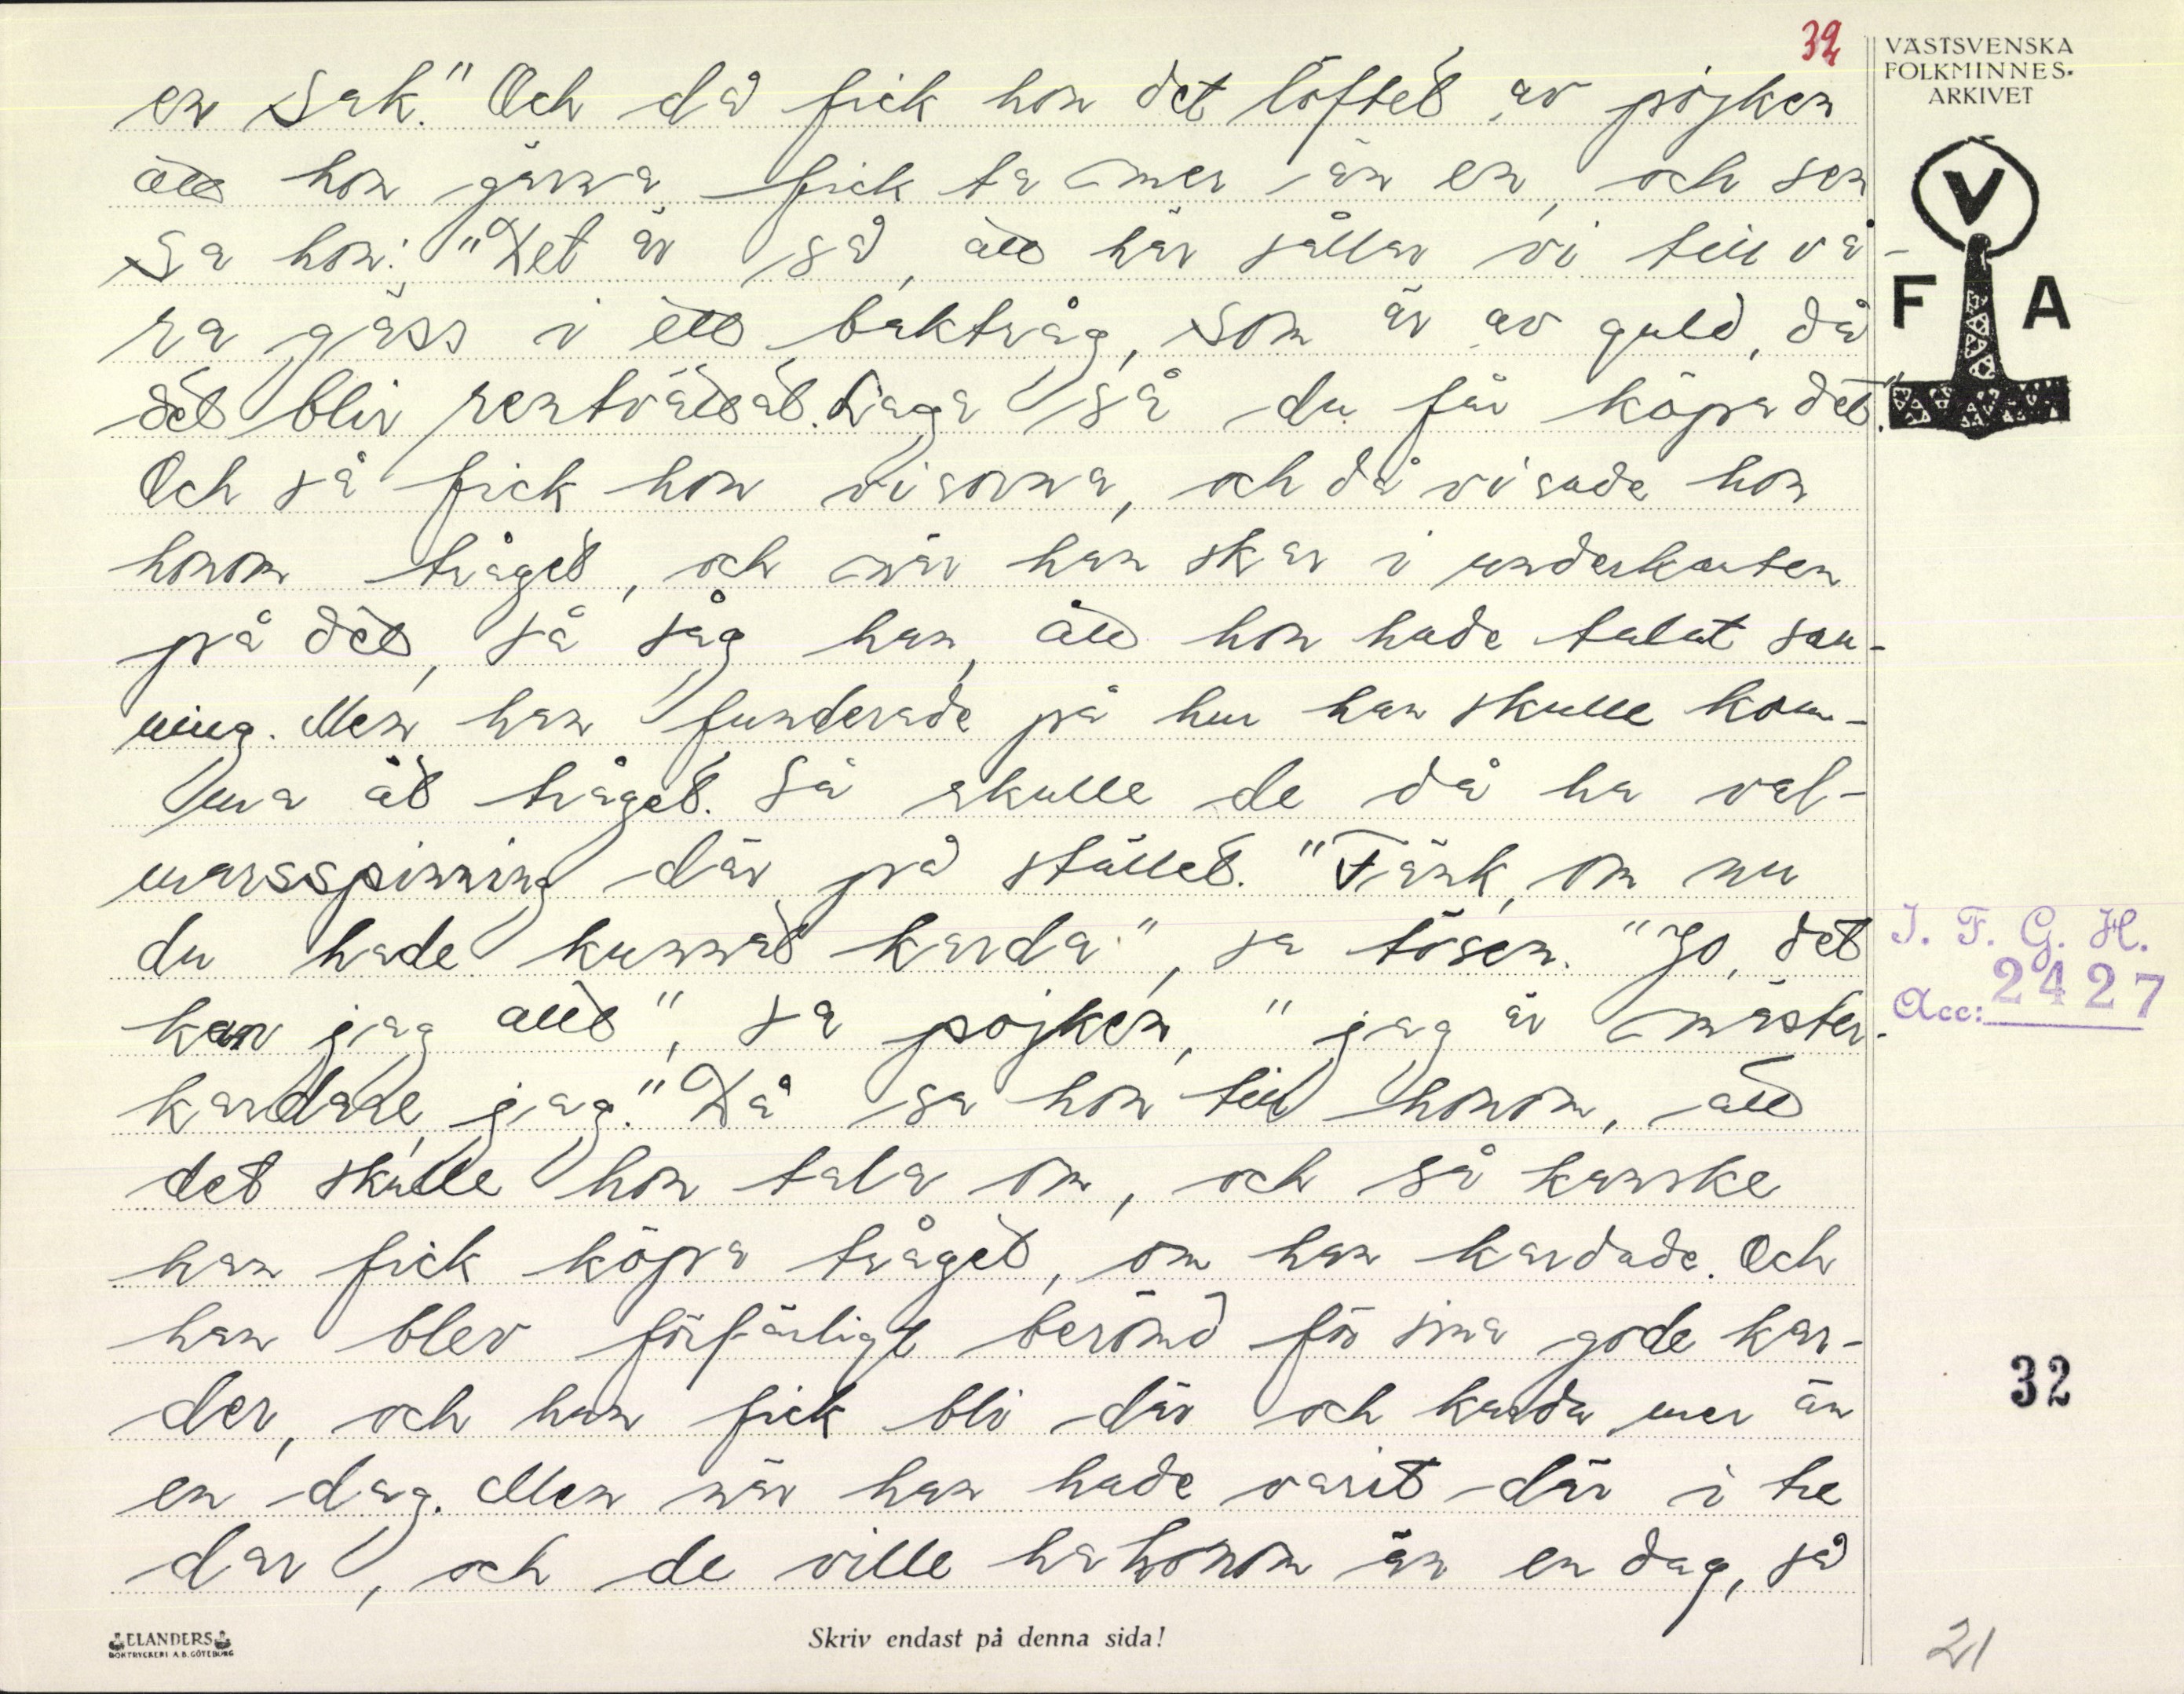 32
VÄSTSVENSKA
FOLKMINNES-
ARKIVET
V
F A
en sak." Och då fick hon det löftet av pojken
att hon gärna fick ta mer än en, och sen
sa hon: "Det är så, att här sållar vi till vå-
ra gäss i ett baktråg, som är av guld, då
det blir rentvättat. Laga så du får köpa det."
Och så fick hon visorna, och då visade hon
honom tråget, och när han skar i underkanten
på det, så såg han, att hon hade talat san-
ning. Men han funderade på hur han skulle kom-
ma åt tråget. Så skulle de då ha val-
marsspinning där på stället. "Tänk, om nu
du hade kunnat karda", sa tösen. "Jo, det
kan jag allt", sa pojken, "jag är mäster-
kardare, jag." Då sa hon till honom, att
det skulle hon tala om, och så kanske
han fick köpa tråget, om han kardade. Och
han blev förfärligt berömd för sina gode kar-
der, och han fick bli där och karda mer än
en dag. Men när han hade varit där i tre
dar, och de ville ha honom än en dag, så
I. F. G. H.
Acc: 2427
32
21
ELANDERS
BOKTRYCKERI A.B. GÖTEBORG
Skriv endast på denna sida!